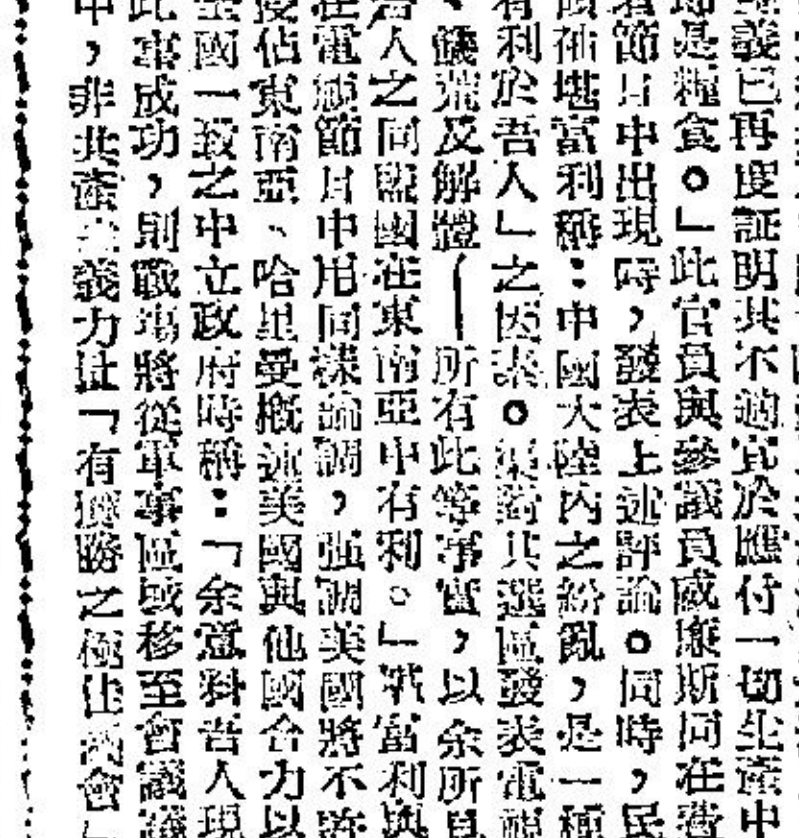 義已再度証明其不適宜於應付一切生產中
是糧食。」此官員與參議員威廉斯同在費
節目中出現時,發表上述評論。同時,民
袖堪富利稱:中國大陸內之紛亂,是一種
有利於吾人」之因素。 對其選區發表電視
、饑荒及解體——所有此等事實,以余所見
人之同盟國在東南亞中有利。」堪富利與
在電視節目中用同樣論調,強調美國將不許
侵佔東南亞、哈里曼概述美國與他國合力以
全國一致之中立政府時稱:「余意料吾人現
此事成功,則戰場將從軍事區域移至會議
中,非共產主義力量「有獲勝之極佳機會」